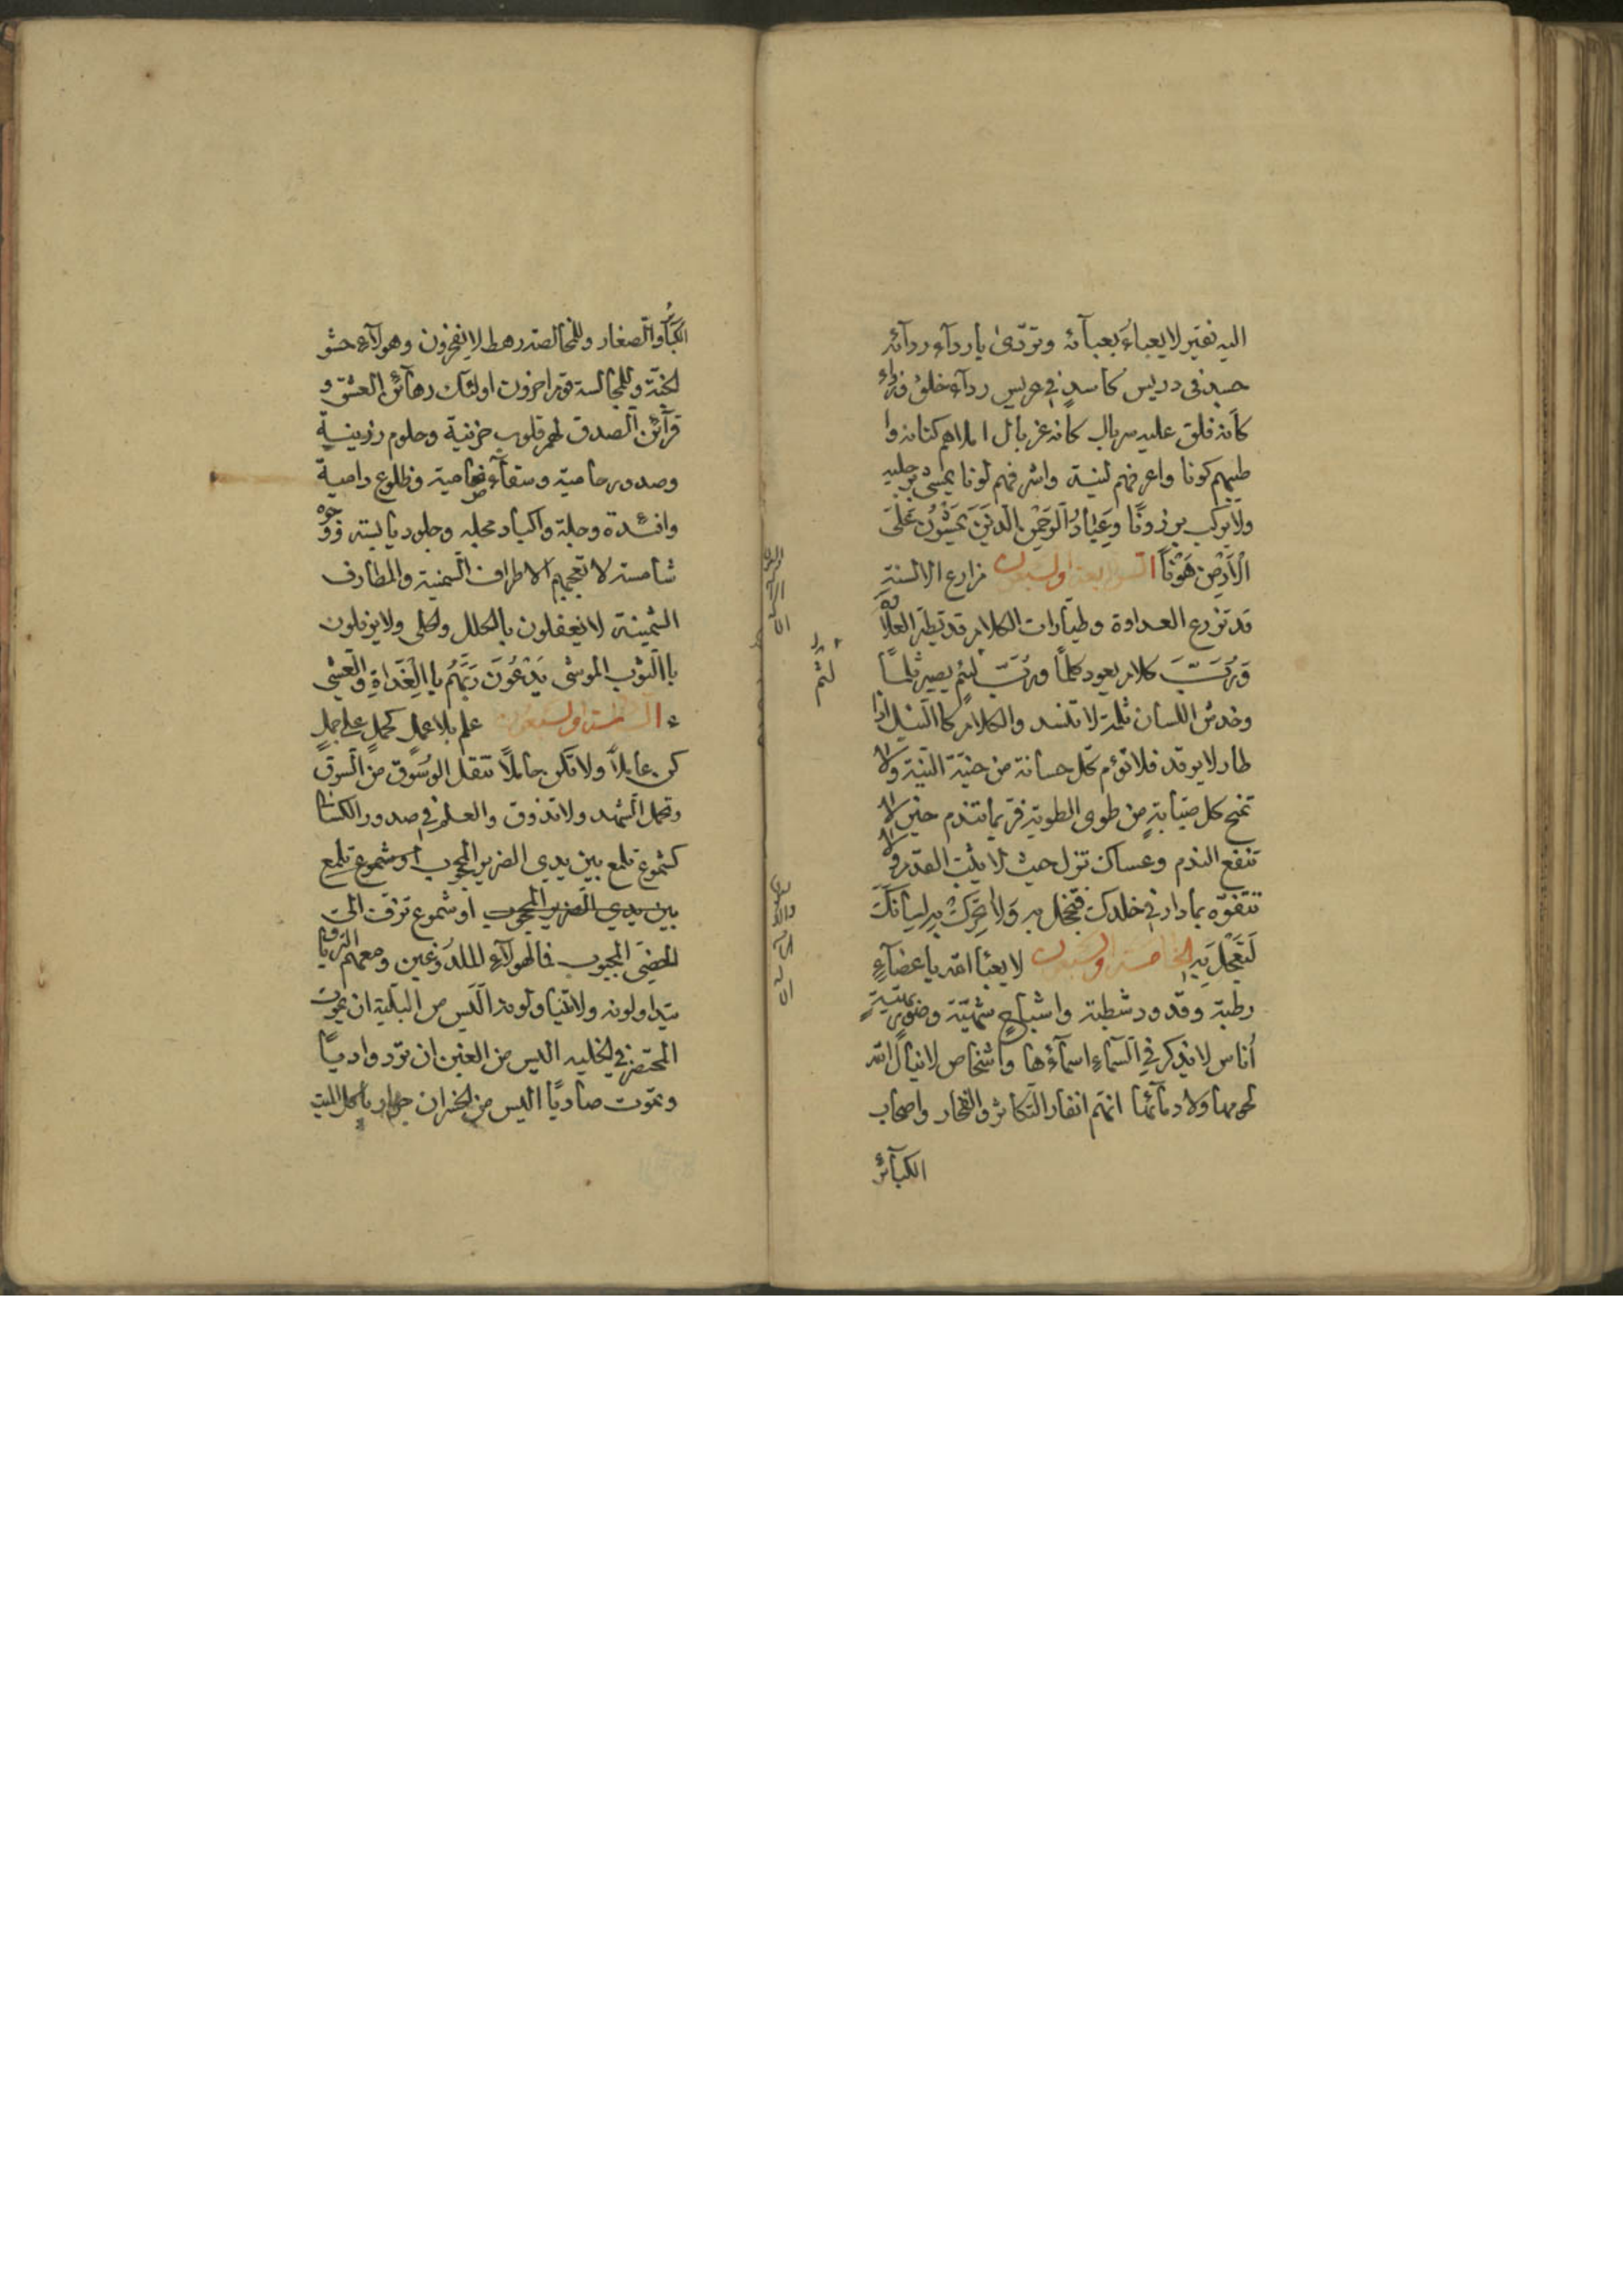 اليه نفير لا يعباءُ بعبآئه وتردّى باردآء ردآئه
في دريس كأسدٍ في عريس ردآء خلق
كأنه فلق عليه سربال كانه غربال املاهم كنانه وا
طيبهم كونا واعرفهم لينة واشرفهم لونا يمشى برجليه
ولا يركب برذونًا وَعِبَادُ الرَّحْمٰنِ الَّذِينَ يَمْشُونَ عَلَى
الْاَرْضِ هَوْنًا الرابعة والسبعون مزارع الالسنة
قد تزرع العداوة وطيارات الكلام قد تطير
وَرُبَّ كلام يعود كلمًا ورُبَّ لثم يصير ثلمًا
وخدش اللسان ثلمة لا تنسد والكلام كاالنبل اذا
طار لا يرتد فلا تؤم كل حسانة من حنيّة النية ولا
تمنح كل صبابةٍ من طوى الطوية فربما تندم حين لا
تنفع الندم وعساك تزل حيث لا يثبت القدم ولا
تتفوّه بما دار في خلدك فتخجل به وَلَا تُحَرِّكْ بِهِ لِسَانَكَ
لِتَعْجَلَ بِهِ الخامسة والسبعون لا يعبأ الله باعضآءٍ
رطبة وقدود شطبة واشباحٍ شهيّة وصور بهيّةٍ
أناس لا يذكر في السماء اسمآءها وأشخاص لا ينال الله
لحومها ولا دمآئها انتم انفار التكاثر والفخار واصحاب
الكبآئر
لثم
الكبآئر والصغار وللمخالصة رهط لا يفخرون وهولآء حشو
الجنّة وللمجالسة قوم اخرون اولئك رهآئن العشق و
قرآئن الصدق لهم قلوب حزينة وحلوم رزينة
وصدور حامية وسقآء وظلوع دامية
وافئدة وجلة واكباد وجلود يابسة ووجوه
شامسة لا تعجبهم الاطراف السمينة والمطارف
الثمينة لا يحفلون بالحلل والحلى ولا يرفلون
باالثوب الموشى يَدْعُونَ رَبَّهُمْ باالْغَدَاةِ وَالْعَشِيِّ
السادسة والسبعون علم بلا عمل كحمل على جمل
كن عاملًا ولا تكن حاملًا تنقل الوسوق من السوق
وتحمل الشهد ولا تذوق والعلم في صدور الكسالى
كشموع تلمع بين يدي الضرير المحجوب أو شموع تلمع
بين يدي الضرير المحجوب او شموع تزف الى
الخصي المجبوب فما لهولآء للملدوغين ومعهم الترياق
يتداولونه ولا يتناولونه اليس من البلية ان يموت
المحتضر في الخلية اليس من الغبن ان ترد واديًا
وتموت صاديًا اليس من الخسران جوار يأكل الميت